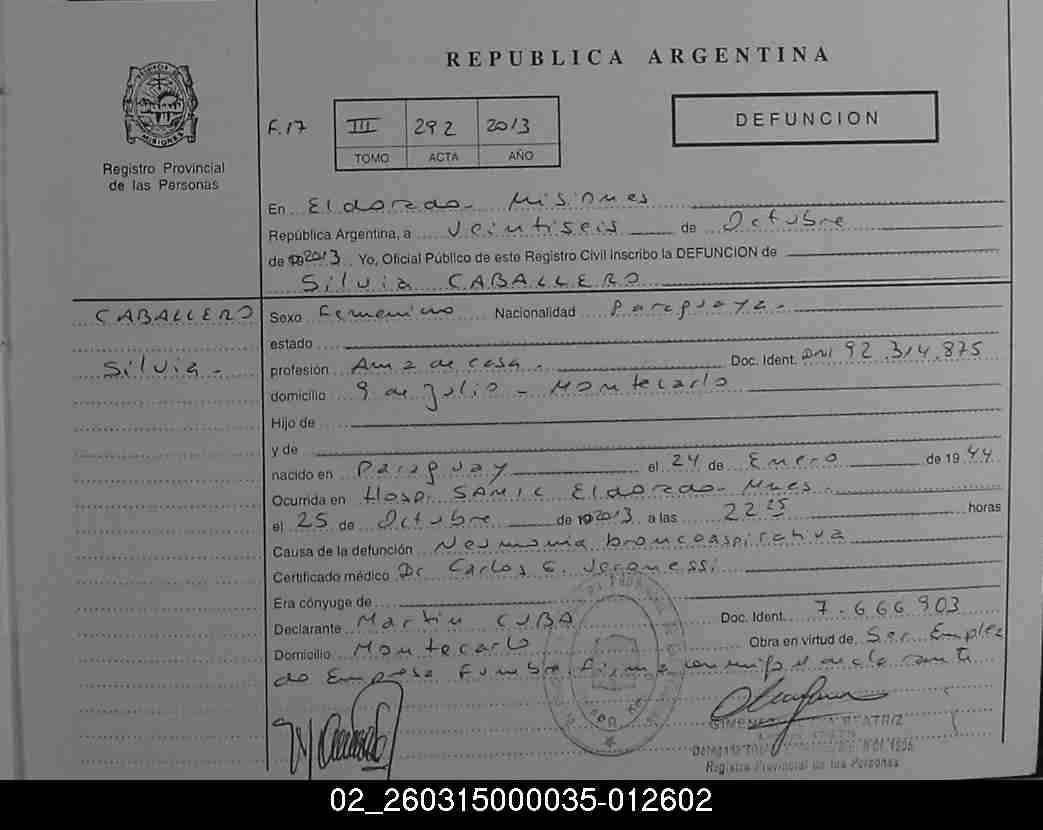 REPUBLICA ARGENTINA
MISIONES
Registro Provincial
de las Personas
F. 17
III 292 2013
TOMO ACTA AÑO
DEFUNCION
En Eldorado - Misiones
República Argentina, a veintiseis de Octubre
de 2013 Yo, Oficial Público de este Registro Civil inscribo la DEFUNCION de
Silvia CABALLERO
CABALLERO
Silvia -
Sexo Femenino Nacionalidad Paraguaya -
estado
profesión Ama de casa - Doc. Ident. DNI 92.314.875
domicilio 9 de Julio - Montecarlo
Hijo de
y de
nacido en Paraguay el 24 de Enero de 1944
Ocurrida en Hosp. SAMIC Eldorado - Mnes -
el 25 de Octubre de 2013 a las 22 25 horas
Causa de la defunción Neumonia broncoaspirativa
Certificado médico Dr Carlos E.
Era cónyuge de
Declarante Martin CUBA Doc. Ident. 7.666.903
Domicilio Montecarlo Obra en virtud de Ser Emplea
do Empresa Funebre firma conmigo el declarante
BEATRIZ
Registro Provincial de las Personas
02_260315000035-012602